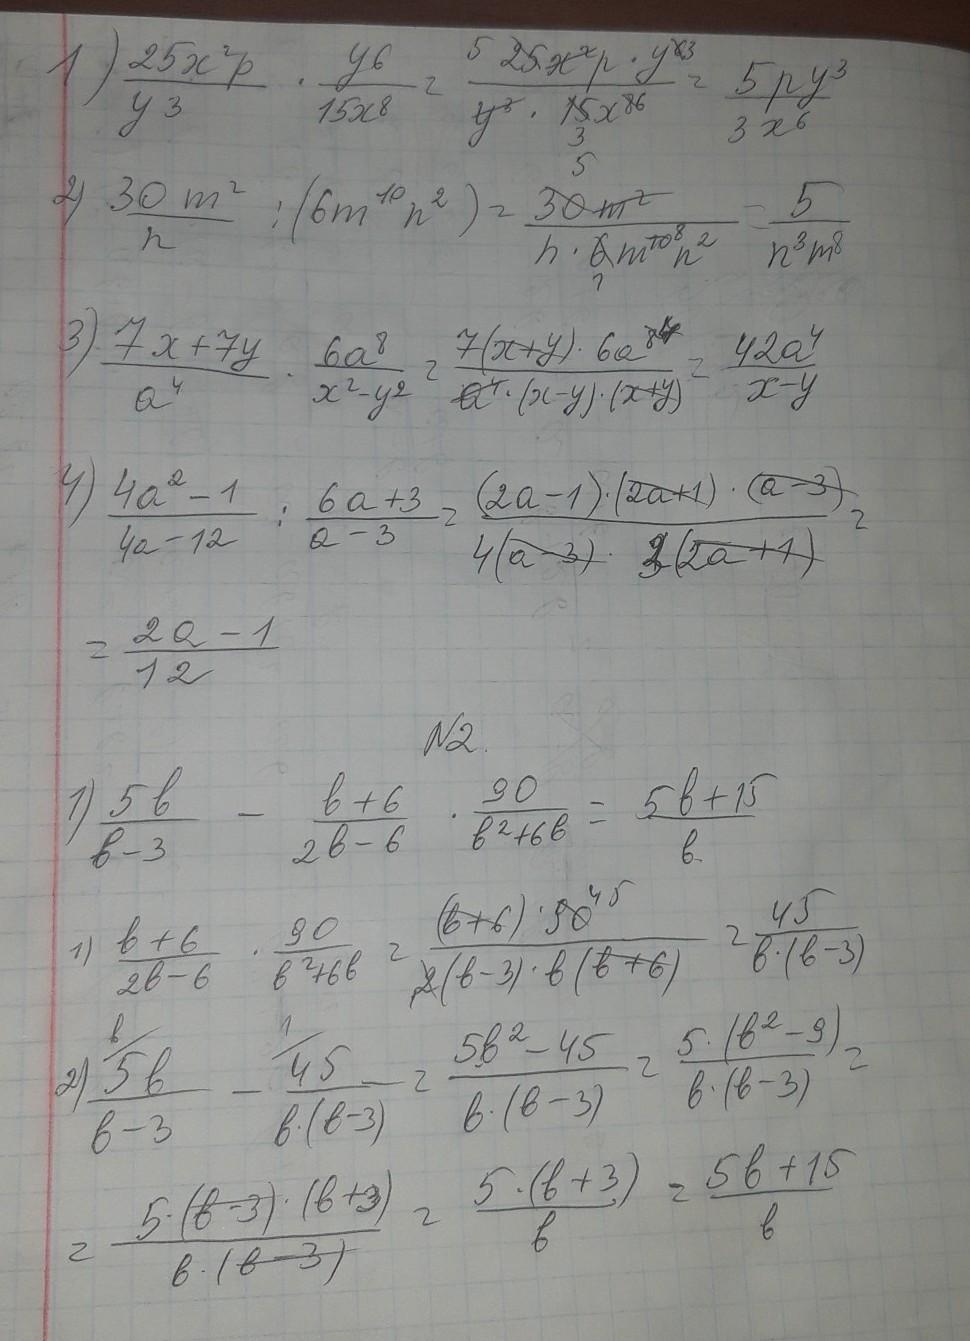 1) 25x²p/y³ · y⁶/15x⁸ = 5 25x²p · y⁶³/y³ · 15x⁸⁶ 3 = 5py³/3x⁶
2) 30m²/n : (6m¹⁰n²) = 5 30m²/n · 6m¹⁰⁸n² 1 = 5/n³m⁸
3) 7x+7y/a⁴ · 6a⁸/x²-y² = 7(x+y) · 6a⁸⁴/a⁴ · (x-y) · (x+y) = 42a⁴/x-y
4) 4a²-1/4a-12 : 6a+3/a-3 = (2a-1) · (2a+1) · (a-3)/4(a-3) · 3(2a+1) =
= 2a-1/12
N2.
1) 5b/b-3 - b+6/2b-6 · 90/b²+6b = 5b+15/b
1) b+6/2b-6 · 90/b²+6b = (b+6) · 90 45/2(b-3) · b(b+6) = 45/b·(b-3)
2) b/ 5b/b-3 - 1/ 45/b·(b-3) = 5b²-45/b·(b-3) = 5·(b²-9)/b·(b-3) =
= 5·(b-3)·(b+3)/b·(b-3) = 5·(b+3)/b = 5b+15/b